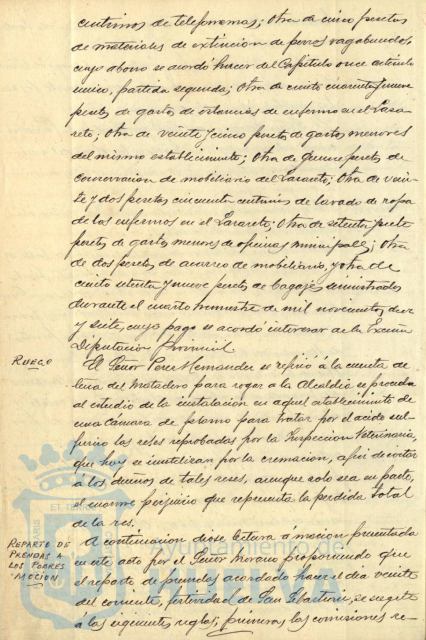 centimos de telefonemas; otra de cinco pesetas
de materiales de extincion de perros vagabundos,
cuyo abono se acordó hacer del Capitulo once articulo
unico, partida segunda; otra de ciento cuarenta y nueve
pesetas de gastos de estancias de enfermo en el Laza-
reto; otra de veinte y cinco pesetas de gastos menores
del mismo establecimiento; otra de quince pesetas de
conservacion de mobiliario del Lazareto; otra de vein-
te y dos pesetas cincuenta centimos de lavado de ropa
de los enfermos en el Lazareto; otra de setenta y siete
pesetas de gastos menores de oficinas municipales; otra
de dos pesetas de acarreo de mobiliario, y otra de
ciento setenta y nueve pesetas de bagajes suministrados
durante el cuarto trimestre de mil novecientos diez
y siete, cuyo pago se acordó interesar de la Excma
Diputacion Provincial.
RUEGO
El Señor Perez Hernandez se refirió á la cuenta de
leña del Matadero para rogar a la Alcaldia se proceda
al estudio de la instalacion en aquel establecimiento de
una cámara de plomo para tratar por el acido sul-
furico las reses reprobadas por la Inspeccion Veterinaria,
que hoy se inutilizan por la cremacion, a fin de evitar
á los dueños de tales reses, aunque solo sea en parte,
el enorme perjuicio que representa la perdida total
de la res.
REPARTO DE
PRENDAS A
LOS POBRES
MOCION
A continuacion diose lectura á mocion presentada
en este acto por el Señor Morano proponiendo que
el reparto de prendas acordado hacer el dia veinte
del corriente, festividad de San Sebastian, se sugete
á las siguientes reglas; primera, las comisiones re-
Ayuntamiento de